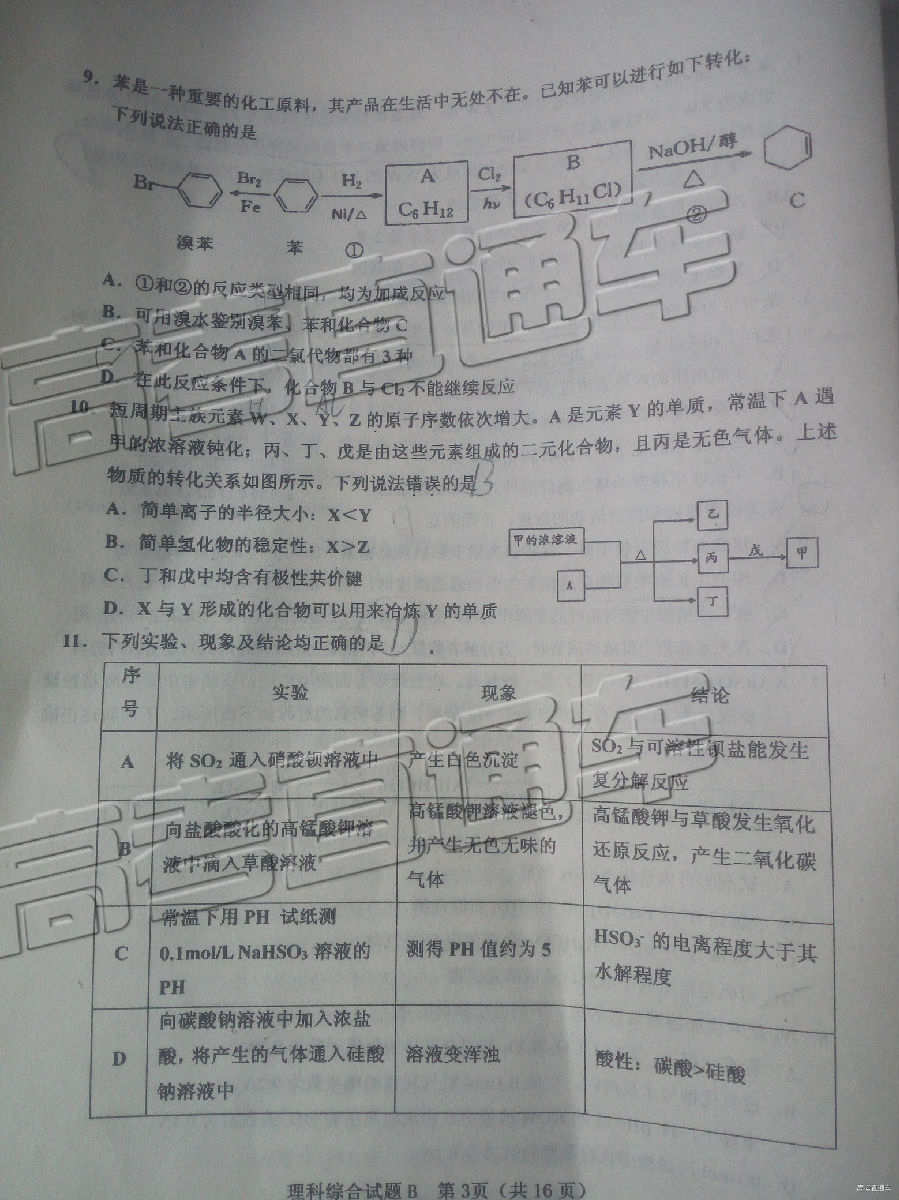 9．苯是一种重要的化工原料，其产品在生活中无处不在。已知苯可以进行如下转化：
下列说法正确的是
Br Br₂ Fe H₂ Ni/△ A C₆H₁₂ Cl₂ hν B (C₆H₁₁Cl) NaOH/醇 △
溴苯 苯 ① ② C
A．①和②的反应类型相同，均为加成反应
B．可用溴水鉴别溴苯、苯和化合物C
C．苯和化合物A的二氯代物都有3种
D．在此反应条件下，化合物B与Cl₂不能继续反应
10．短周期主族元素W、X、Y、Z的原子序数依次增大。A是元素Y的单质，常温下A遇
甲的浓溶液钝化；丙、丁、戊是由这些元素组成的二元化合物，且丙是无色气体。上述
物质的转化关系如图所示。下列说法错误的是 B
A．简单离子的半径大小：X＜Y
B．简单氢化物的稳定性：X＞Z
C．丁和戊中均含有极性共价键
D．X与Y形成的化合物可以用来冶炼Y的单质
甲的浓溶液 A △ 乙 丙 丁 戊 甲
11．下列实验、现象及结论均正确的是 D
序号 实验 现象 结论
A 将SO₂通入硝酸钡溶液中 产生白色沉淀 SO₂与可溶性钡盐能发生
复分解反应
B 向盐酸酸化的高锰酸钾溶
液中滴入草酸溶液
高锰酸钾溶液褪色，
并产生无色无味的
气体
高锰酸钾与草酸发生氧化
还原反应，产生二氧化碳
气体
C 常温下用PH 试纸测
0.1mol/L NaHSO₃溶液的
PH
测得PH值约为5
HSO₃⁻的电离程度大于其
水解程度
D 向碳酸钠溶液中加入浓盐
酸，将产生的气体通入硅酸
钠溶液中
溶液变浑浊
酸性：碳酸>硅酸
理科综合试题B 第3页（共16页）
高考直通车
高考直通车
高考直通车